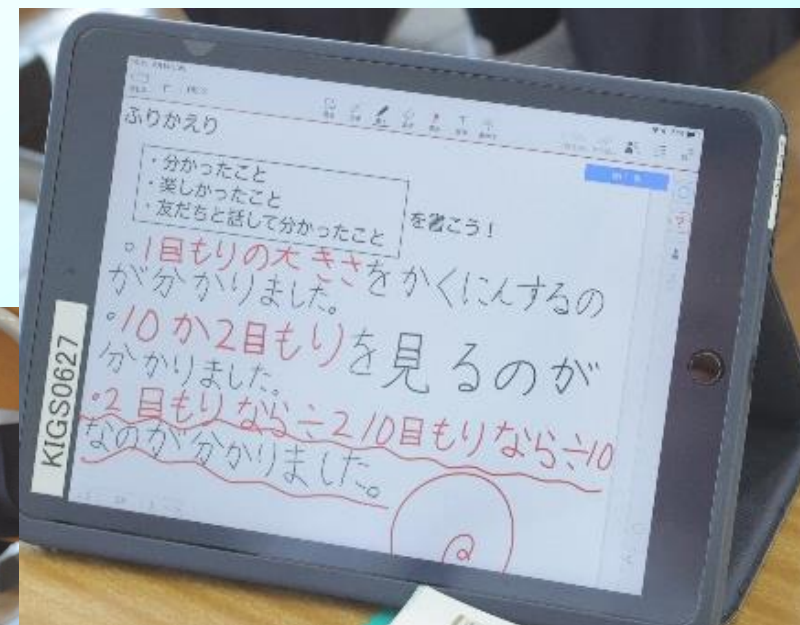 ふりかえり
・分かったこと
・楽しかったこと
・友だちと話して分かったこと
を書こう！
。1目もりの大きさをかくにんするの
が分かりました。
。10か2目もりを見るのが
分かりました。
。2目もりなら÷2 10目もりなら÷10
なのが分かりました。
KIGS0627